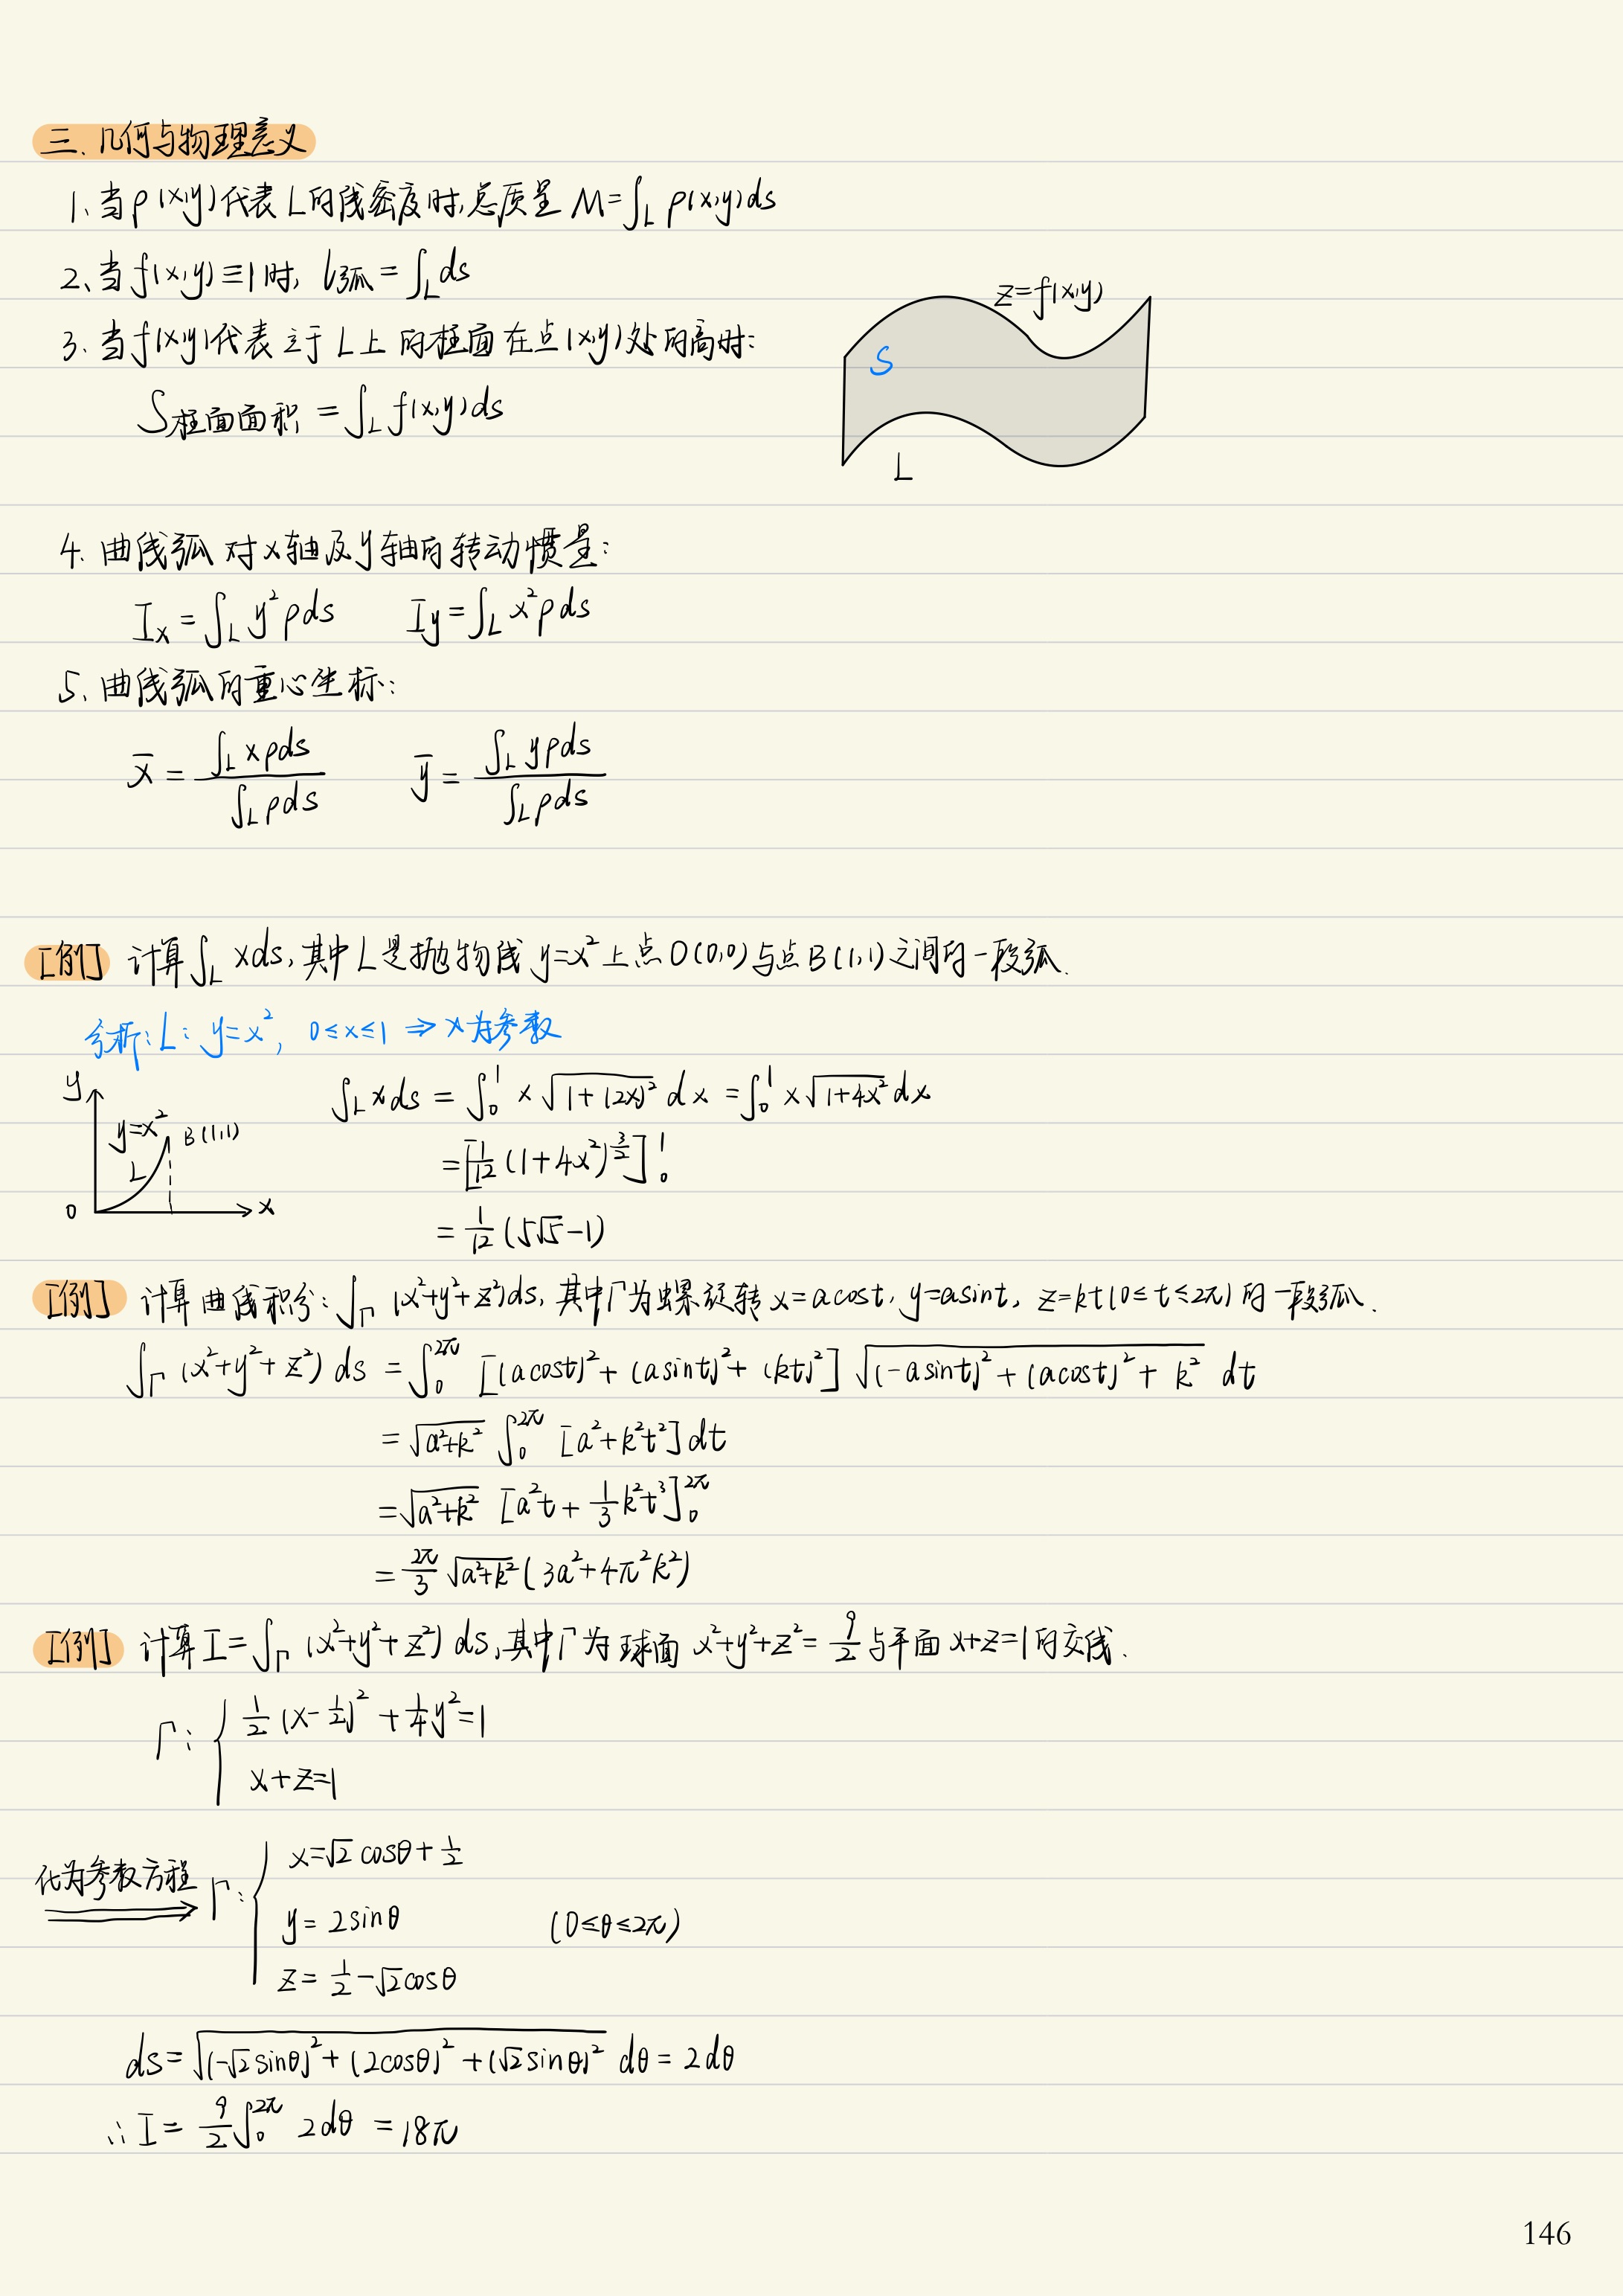 三、几何与物理意义
1、当ρ(x,y)代表L的线密度时,总质量 M=∫_L ρ(x,y)ds
2、当f(x,y)≡1时, l弧=∫_L ds
3、当f(x,y)代表立于L上的柱面在点(x,y)处的高时:
S柱面面积=∫_L f(x,y)ds
z=f(x,y)
S
L
4、曲线弧对x轴及y轴的转动惯量:
I_x=∫_L y²ρds I_y=∫_L x²ρds
5、曲线弧的重心坐标:
x̄=∫_L xρds/∫_L ρds ȳ=∫_L yρds/∫_L ρds
[例] 计算∫_L xds,其中L是抛物线y=x²上点O(0,0)与点B(1,1)之间的一段弧.
分析:L: y=x², 0≤x≤1 ⇒ x为参数
y
y=x²
B(1,1)
L
0
x
∫_L xds=∫_0^1 x√(1+(2x)²) dx=∫_0^1 x√(1+4x²) dx
=[1/12 (1+4x²)^(3/2)]_0^1
=1/12 (5√5-1)
[例] 计算曲线积分:∫_Γ (x²+y²+z²)ds,其中Γ为螺旋转x=acost, y=asint, z=kt(0≤t≤2π)的一段弧.
∫_Γ (x²+y²+z²) ds=∫_0^2π [(acost)²+(asint)²+(kt)²] √((-asint)²+(acost)²+k²) dt
=√(a²+k²) ∫_0^2π [a²+k²t²]dt
=√(a²+k²) [a²t+1/3 k²t³]_0^2π
=2π/3 √(a²+k²)(3a²+4π²k²)
[例] 计算I=∫_Γ (x²+y²+z²) ds,其中Γ为球面 x²+y²+z²=9/2与平面x+z=1的交线.
Γ: { 1/2 (x-1/2)²+1/4 y²=1
x+z=1
化为参数方程 ⇒ Γ: { x=√2 cosθ+1/2
y=2sinθ (0≤θ≤2π)
z=1/2-√2cosθ
ds=√((-√2sinθ)²+(2cosθ)²+(√2sinθ)²) dθ=2dθ
∴I=9/2∫_0^2π 2dθ=18π
146